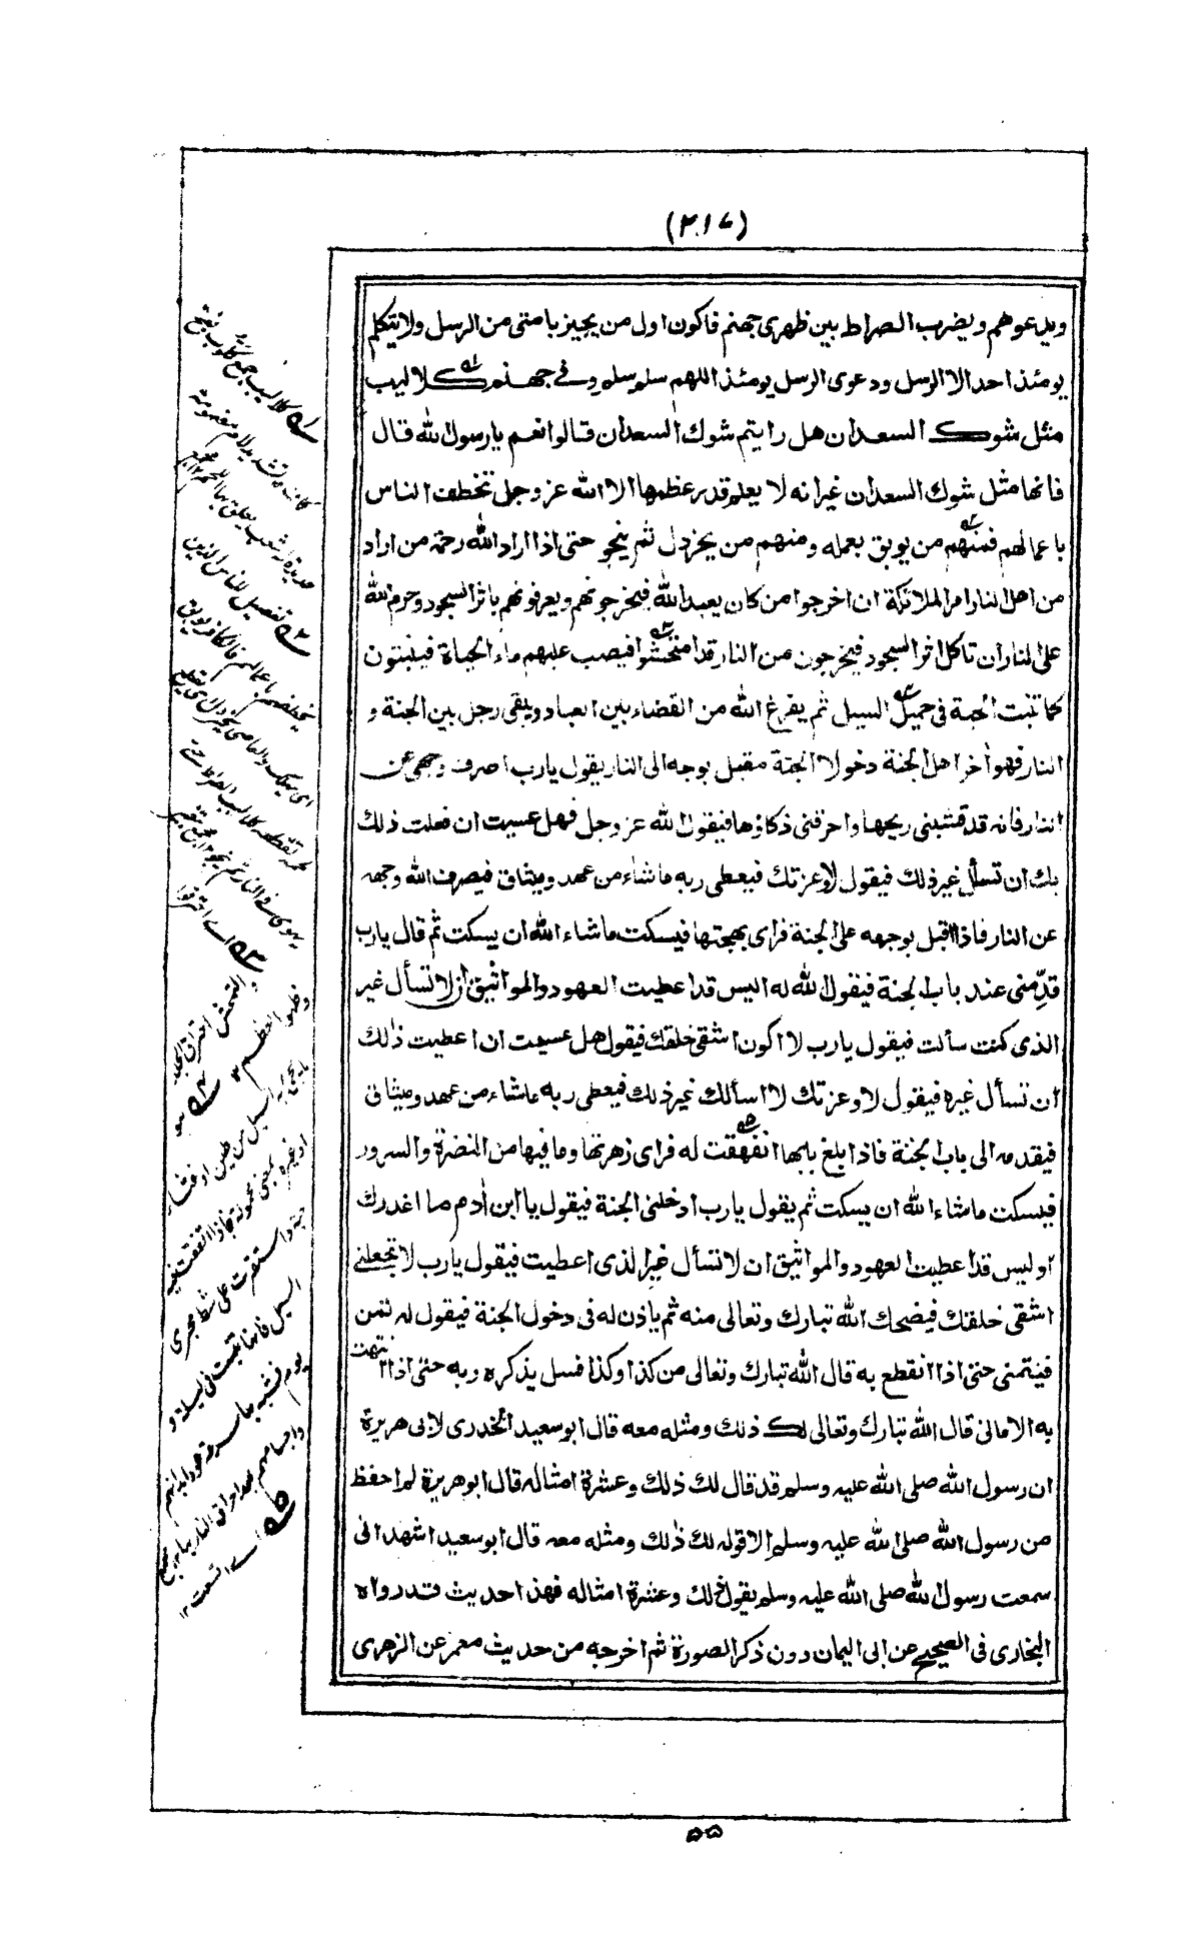 (٢١٧)
ويدعوهم ويضرب الصراط بين ظهرى جهنم فاكون اول من يجيز بامتى من الرسل ولا يتكلم
يومئذ احد الا الرسل ودعوى الرسل يومئذ اللهم سلم سلم وفى جهنم كلاليب
مثل شوك السعدان هل رايتم شوك السعدان قالوا نعم يا رسول الله قال
فانها مثل شوك السعدان غير انه لا يعلم قدر عظمها الا الله عز وجل تخطف الناس
باعمالهم فمنهم من يوبق بعمله ومنهم من يخردل ثم ينجو حتى اذا اراد الله رحمة من اراد
من اهل النار امر الملائكة ان اخرجوا من كان يعبد الله فيخرجونهم ويعرفونهم باثر السجود وحرم الله
على النار ان تاكل اثر السجود فيخرجون من النار قد امتحشوا فيصب عليهم ماء الحياة فينبتون
كما تنبت الحبة فى حميل السيل ثم يفرغ الله من القضاء بين العباد ويبقى رجل بين الجنة و
النار فهو أخر اهل الجنة دخولا الجنة مقبل بوجه الى النار يقول يارب اصرف وجهى عن
النار فانه قد قشبنى ريحها واحرقنى ذكاؤها فيقول الله عز وجل فهل عسيت ان فعلت ذلك
بك ان تسأل غير ذلك فيقول لا وعزتك فيعطى ربه ما شاء من عهد وميثاق فيصرف الله وجهه
عن النار فاذا اقبل بوجهه على الجنة فراى بهجتها فيسكت ما شاء الله ان يسكت ثم قال يارب
قدّمنى عند باب الجنة فيقول الله له اليس قد اعطيت العهود والمواثيق ان لا تسأل غير
الذى كنت سألت فيقول يارب لا اكون اشقى خلقك فيقول هل عسيت ان اعطيت ذلك
ان تسأل غيره فيقول لا وعزتك لا اسألك غير ذلك فيعطى ربه ما شاء من عهد وميثاق
فيقدمه الى باب الجنة فاذا بلغ بابها انفهقت له فراى زهرتها وما فيها من النضرة والسرور
فيسكت ما شاء الله ان يسكت ثم يقول يارب ادخلنى الجنة فيقول يا ابن أدم ما اغدرك
اوليس قد اعطيت العهود والمواثيق ان لا تسأل غير الذى اعطيت فيقول يارب لا تجعلنى
اشقى خلقك فيضحك الله تبارك وتعالى منه ثم ياذن له فى دخول الجنة فيقول له تمن
فيتمنى حتى اذا انقطع به قال الله تبارك وتعالى من كذا وكذا فسل يذكره ربه حتى اذا انتهت
به الامانى قال الله تبارك وتعالى لك ذلك ومثله معه قال ابو سعيد الخدرى لابى هريرة
ان رسول الله صلى الله عليه وسلم قد قال لك ذلك وعشرة امثاله قال ابو هريرة لم احفظ
من رسول الله صلى الله عليه وسلم الا قوله لك ذلك ومثله معه قال ابو سعيد اشهد انى
سمعت رسول الله صلى الله عليه وسلم يقول ذلك وعشرة امثاله فهذا حديث قد رواه
البخارى فى الصحيح عن ابى اليمان دون ذكر الصورة ثم اخرجه من حديث معمر عن الزهرى
٥٥